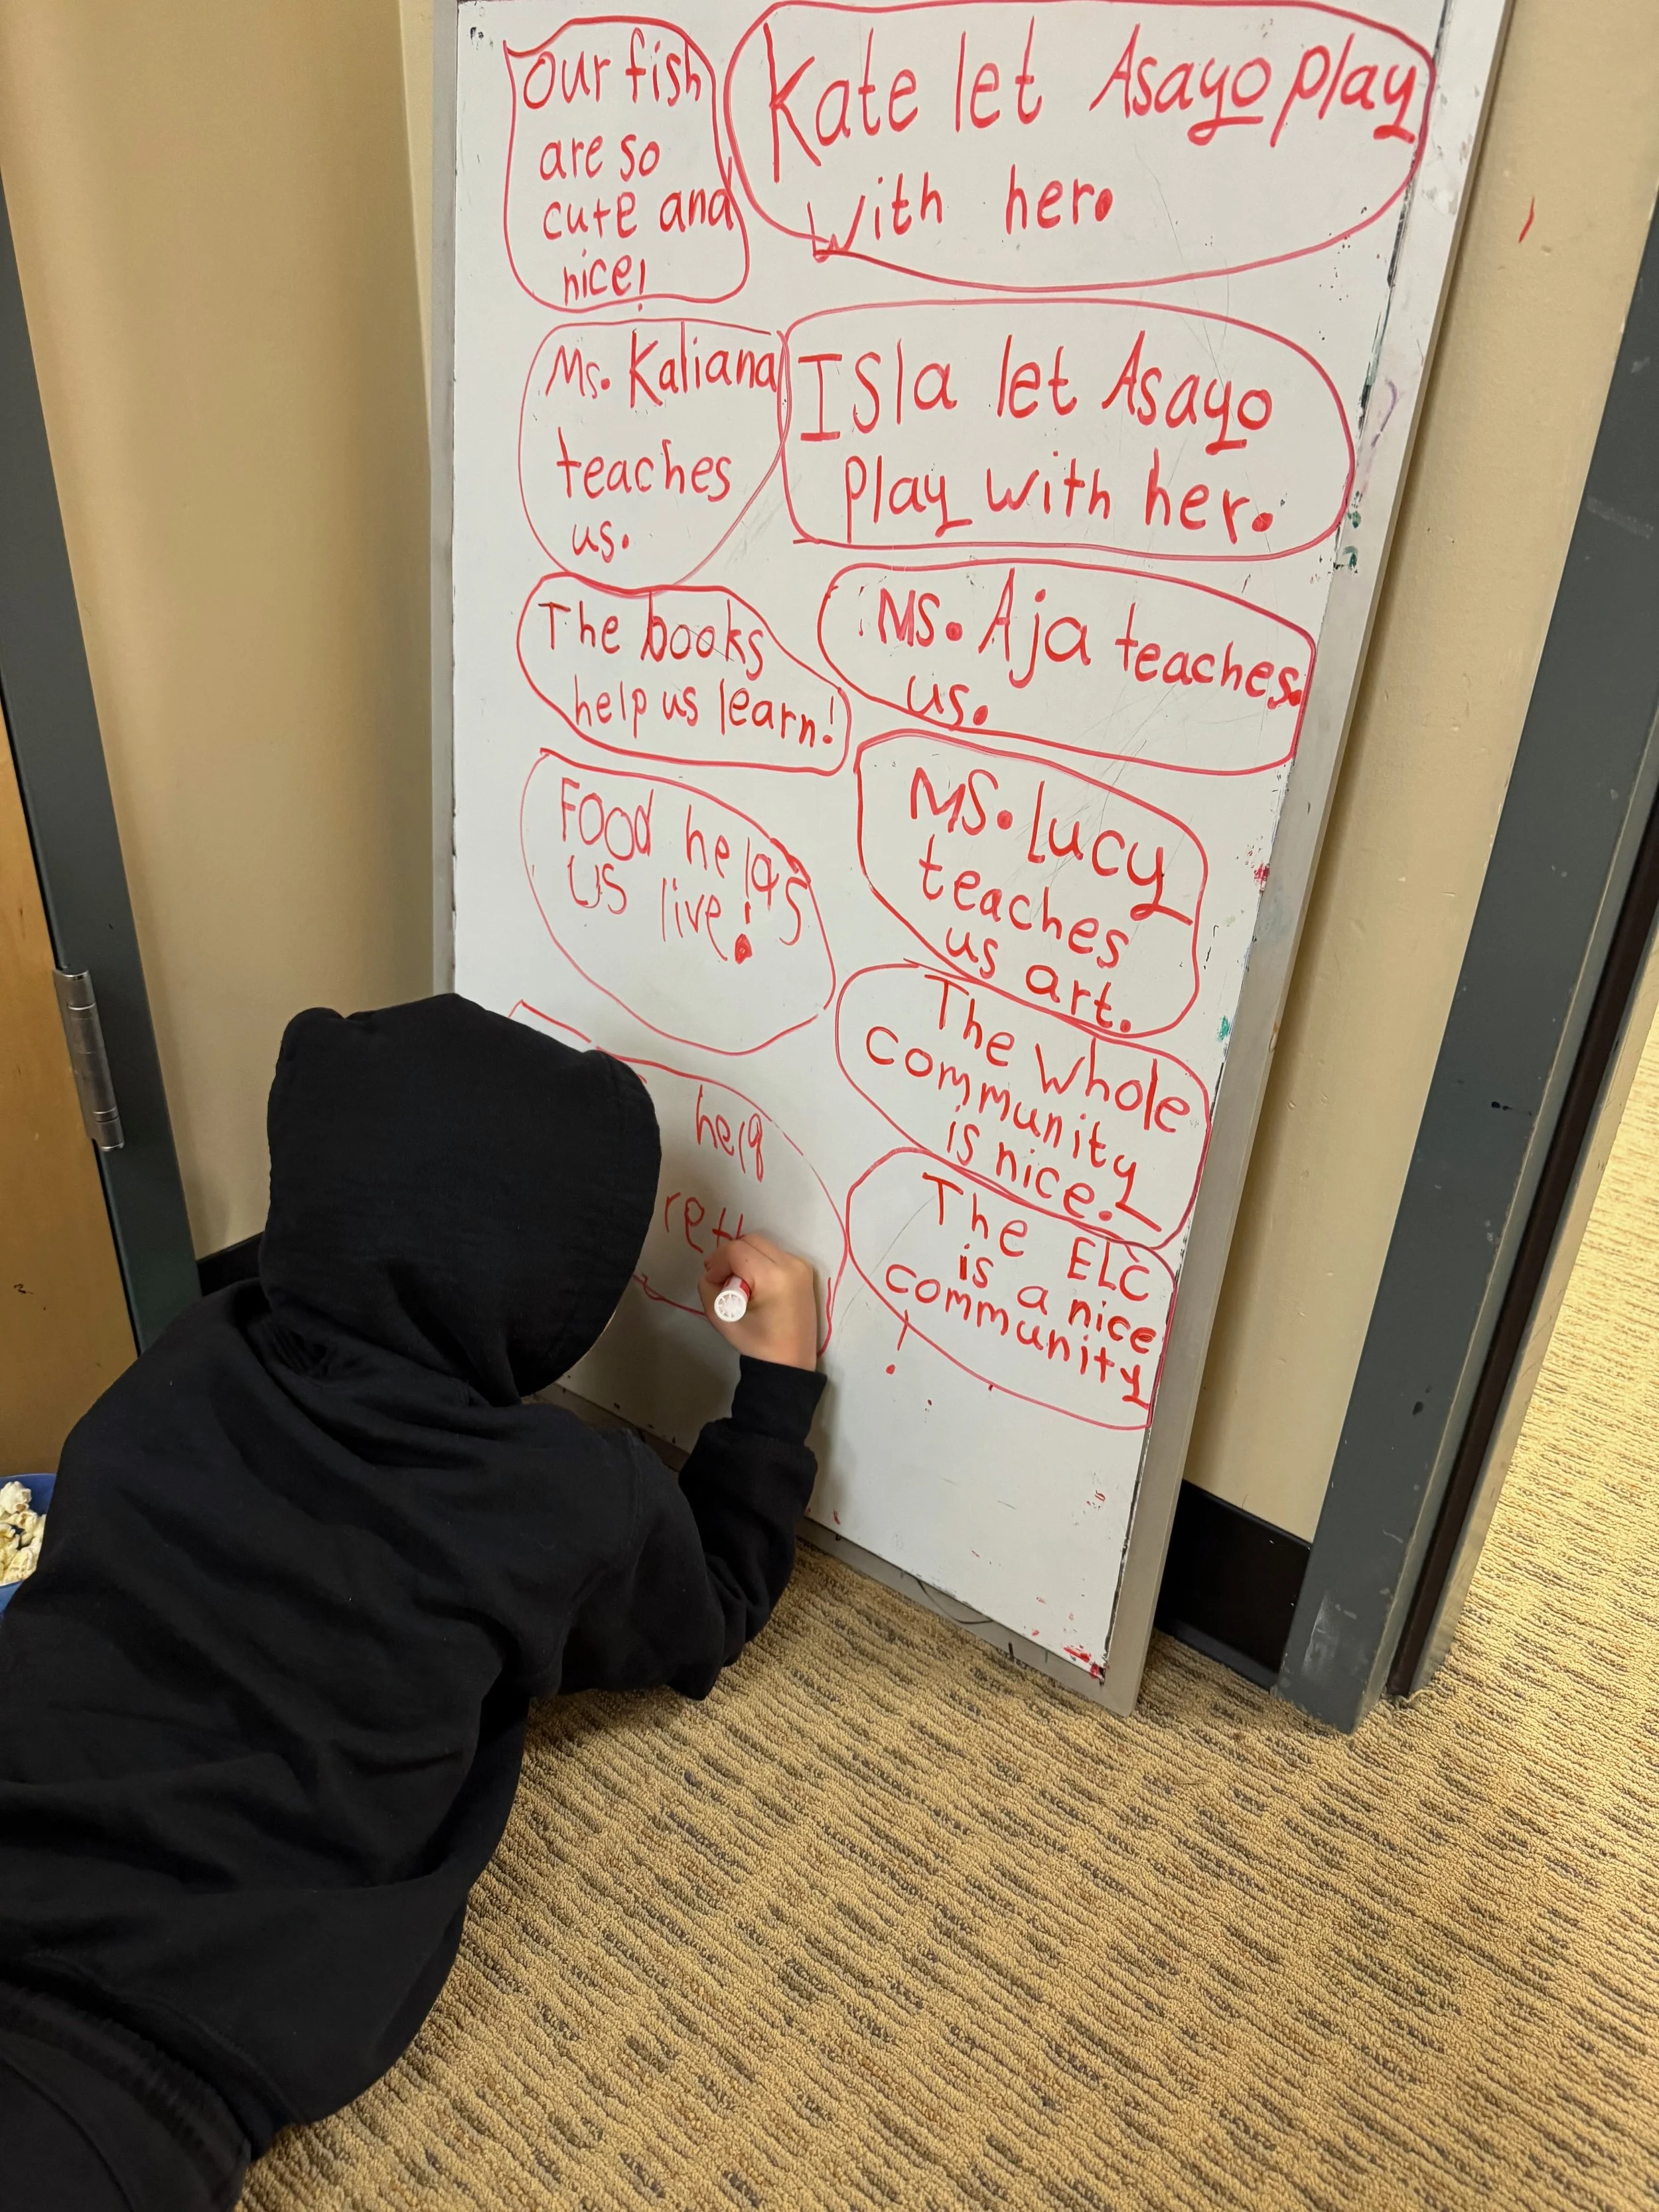 Our fish
are so
cute and
nice!
Kate let Asayo play
with her.
Ms. Kaliana
teaches
us.
Isla let Asayo
play with her.
The books
help us learn!
Ms. Aja teaches
us.
Food helps
us live!
Ms. Lucy
teaches
us art.
The whole
community
is nice.
help
The ELC
is a nice
community
!